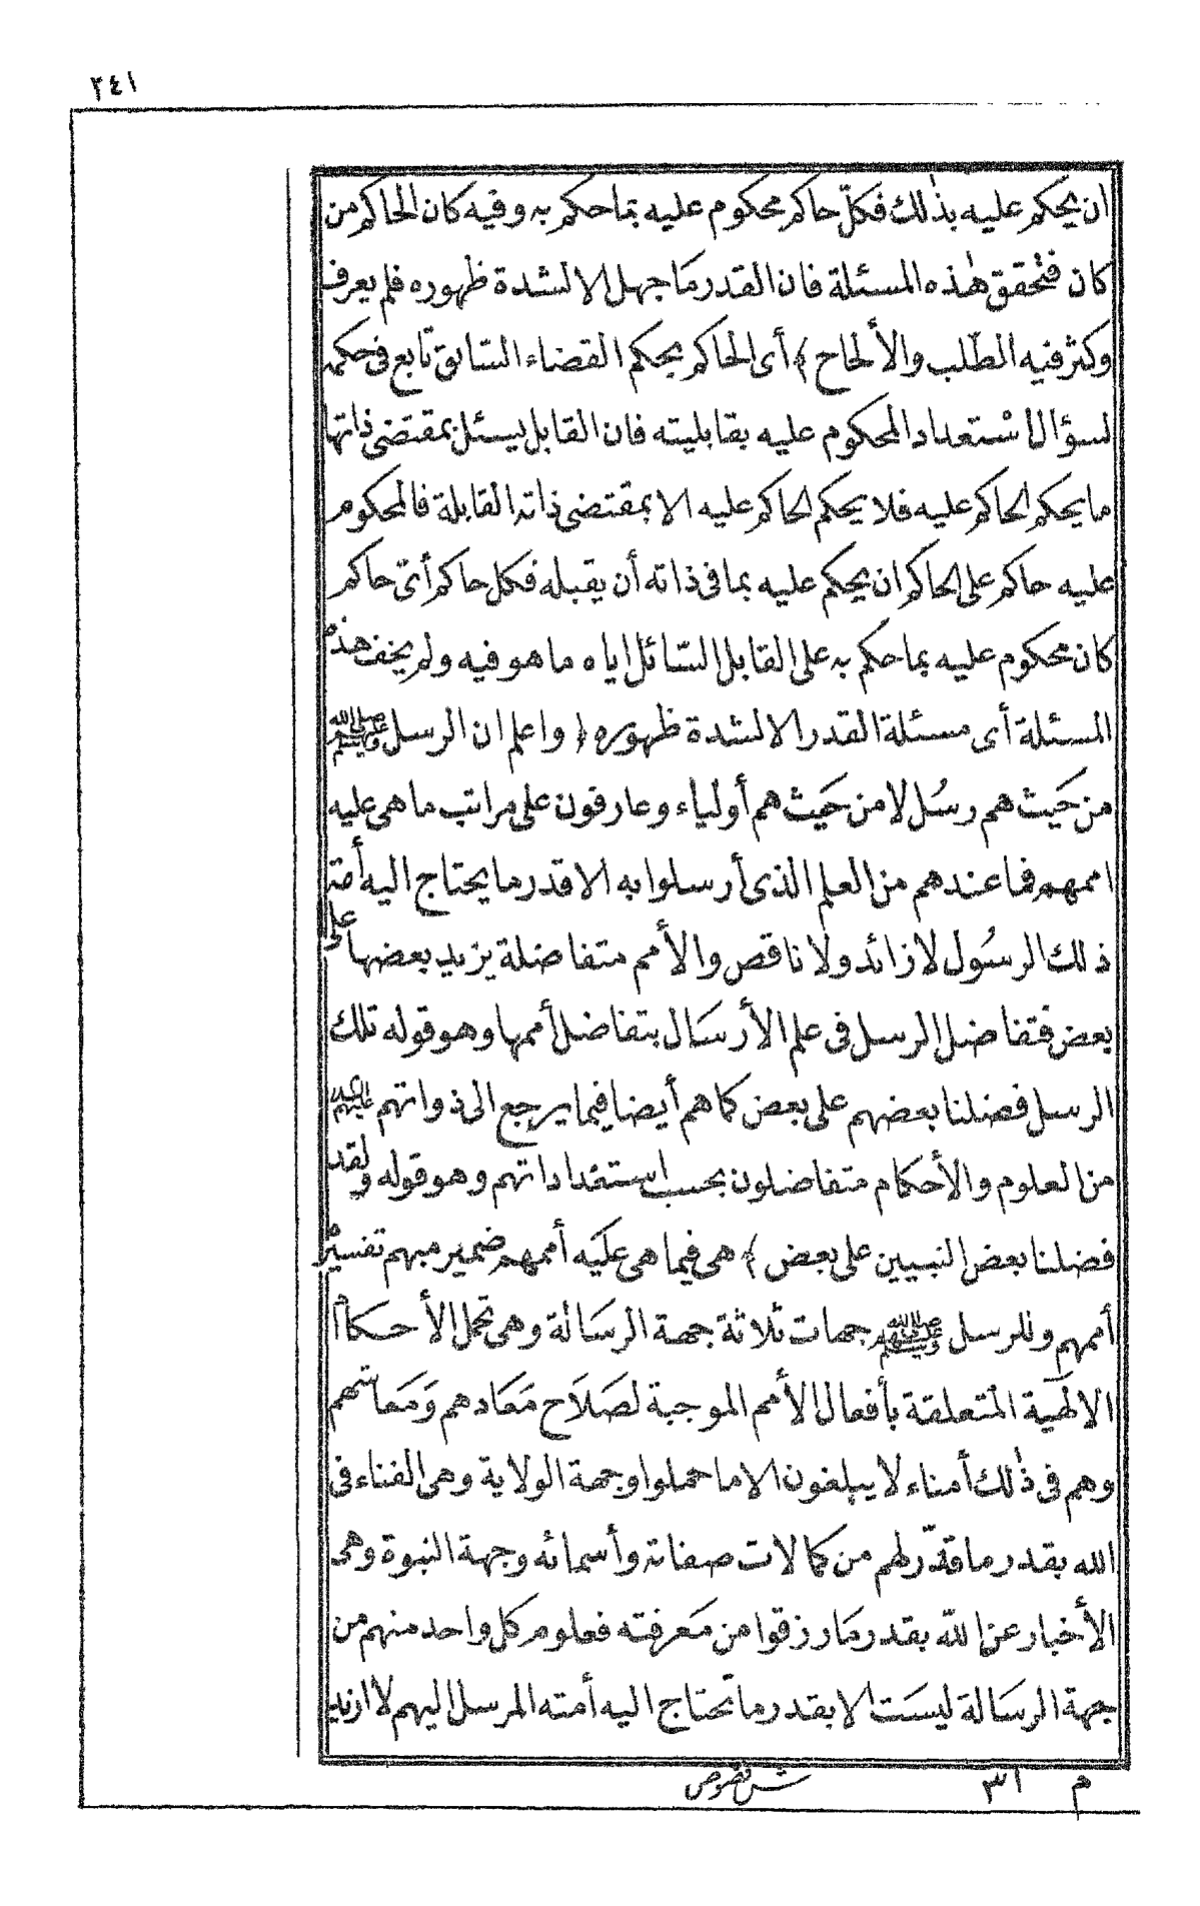 ٢٤١
ان يحكم عليه بذٰلك فكلّ حاكم محكوم عليه بما حكم به وفيه كان الحاكم من
كان فتحقق هٰذه المسئلة فان القدر مَا جهل الا لشدة ظهوره فلم يعرف
وكثر فيه الطّلب والألحاح ﴾ أى الحاكم بحكم القضاء السّابق تابع فى حكمه
لسؤال استعداد المحكوم عليه بقابليته فان القابل يسئل بمقتضى ذاتها
ما يحكم الحاكم عليه فلا يحكم الحاكم عليه الا بمقتضى ذاته القابلة فالمحكوم
عليه حاكم على الحاكم ان يحكم عليه بما فى ذاته أن يقبله فكل حاكم أىّ حاكم
كان محكوم عليه بما حكم به على القابل السّائل اياه ما هو فيه ولم يخف هذه
المسئلة أى مسئلة القدر الا لشدة ظهوره ﴿ واعلم ان الرسل ﷺ
من حَيث هم رسُل لا من حَيث هم أولياء وعارفون على مراتب ما هى عليه
اممهم فما عندهم من العلم الذى أرسلوا به الا قدر ما يحتاج اليه أمة
ذلك الرسُول لا زائد ولا ناقص والأمم متفاضلة يزيد بعضها على
بعض فتفاضل الرسل فى علم الأرسَال بتفاضل أممها وهو قوله تلك
الرسل فضلنا بعضهم على بعض كما هم أيضا فيما يرجع الى ذواتهم عليهم السلام
من العلوم والأحكام متفاضلون بحسب استعداداتهم وهو قوله ولقد
فضلنا بعض النبيين على بعض ﴾ هى فيما هى عليه أممهم ضمير مبهم تفسيره
أممهم وللرسل ﷺ جهات ثلاثة جهة الرسَالة وهى تحمل الأحكام
الالهٰية المتعلقة بأفعال الأمم الموجبة لصَلَاح مَعَادهم وَمَعَاشهم
وهم فى ذٰلك أمناء لا يبلغون الا ما حملوا وجهة الولاية وهى الفناء فى
الله بقدر ما قدّر لهم من كمالات صفاته وأسمائه وجهة النبوة وهى
الأخبار عن اللّه بقدر مَا رزقوا من مَعرفته فعلوم كل واحد منهم من
جهة الرسَالة ليسَت الا بقدر ما تحتاج اليه أمته المرسل اليهم لا ازيد
م ٣١ شرح فصوص